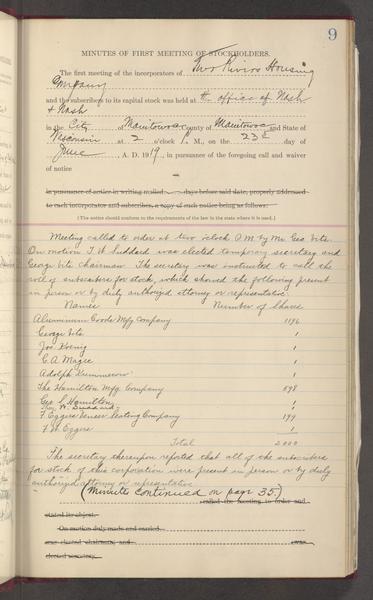 9
MINUTES OF FIRST MEETING OF STOCKHOLDERS.
The first meeting of the incorporators of Two Rivers Housing
Company
and the subscribers to its capital stock was held at the office of Nash
& Nash
in the City of Manitowoc County of Manitowoc and State of
Wisconsin at 2 o'clock P. M., on the 23rd day of
June A. D. 1919, in pursuance of the foregoing call and waiver
of notice
in pursuance of notice in writing mailed days before said date, properly addressed
to each incorporator and subscriber, a copy of such notice being as follows:
(The notice should conform to the requirements of the law in the state where it is used.)
Meeting called to order at two o'clock P.M. by Mr. Geo Vits.
On motion F. W. Suddard was elected temporary secretary and
George Vits chairman. The secretary was instructed to call the
roll of subscribers for stock, which showed the following present
in person or by duly authorized attorney or representative.
Names Number of Shares
Aluminum Goods Mfg Company 1196
George Vits 1
Jos. Koenig 1
C. A. Magee 1
Adolph Kummerow 1
The Hamilton Mfg. Company 598
Geo. S. Hamilton 1
W. Suddard 1
F. Eggers Veneer Seating Company 199
F. W. Eggers 1
Total 2000
The secretary thereupon reported that all of the subscribers
for stock of this corporation were present in person or by duly
authorized attorney or representative
(Minutes continued on page 35.)
called the meeting to order and
stated its object.
On motion duly made and carried,
was elected chairman, and was
elected secretary.